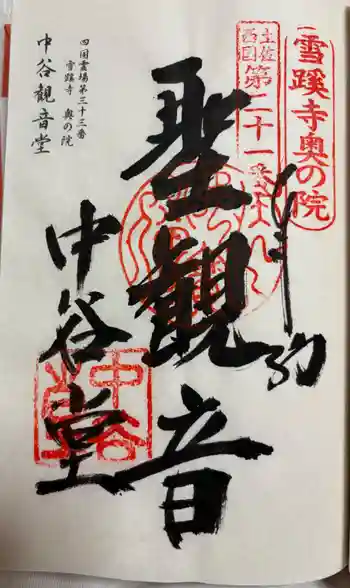 雪蹊寺奥の院
土佐
西国
第二十一番
奉拝
聖観音
中谷堂
中谷
四国霊場第三十三番
雪蹊寺 奥の院
中谷観音堂